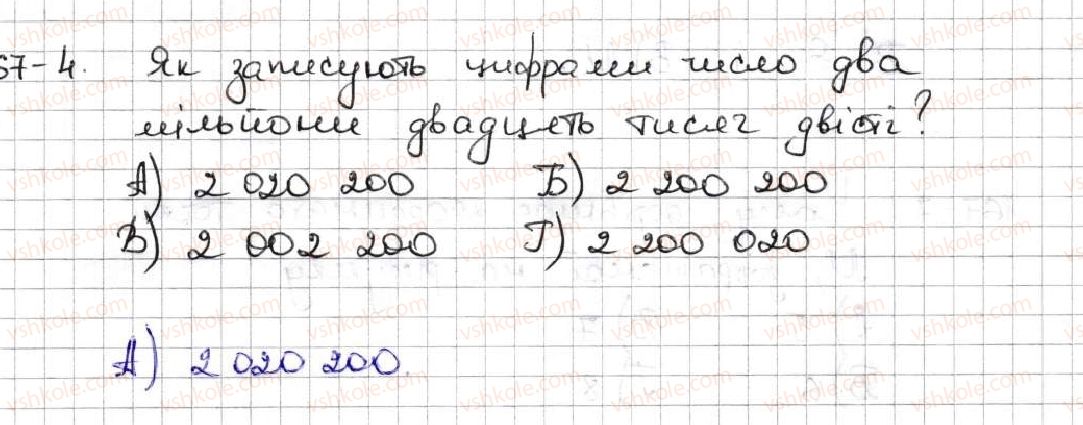 67-4. Як записують цифрами число два
мільйони двадцять тисяч двісті?
А) 2 020 200 Б) 2 200 200
В) 2 002 200 Г) 2 200 020
А) 2 020 200.